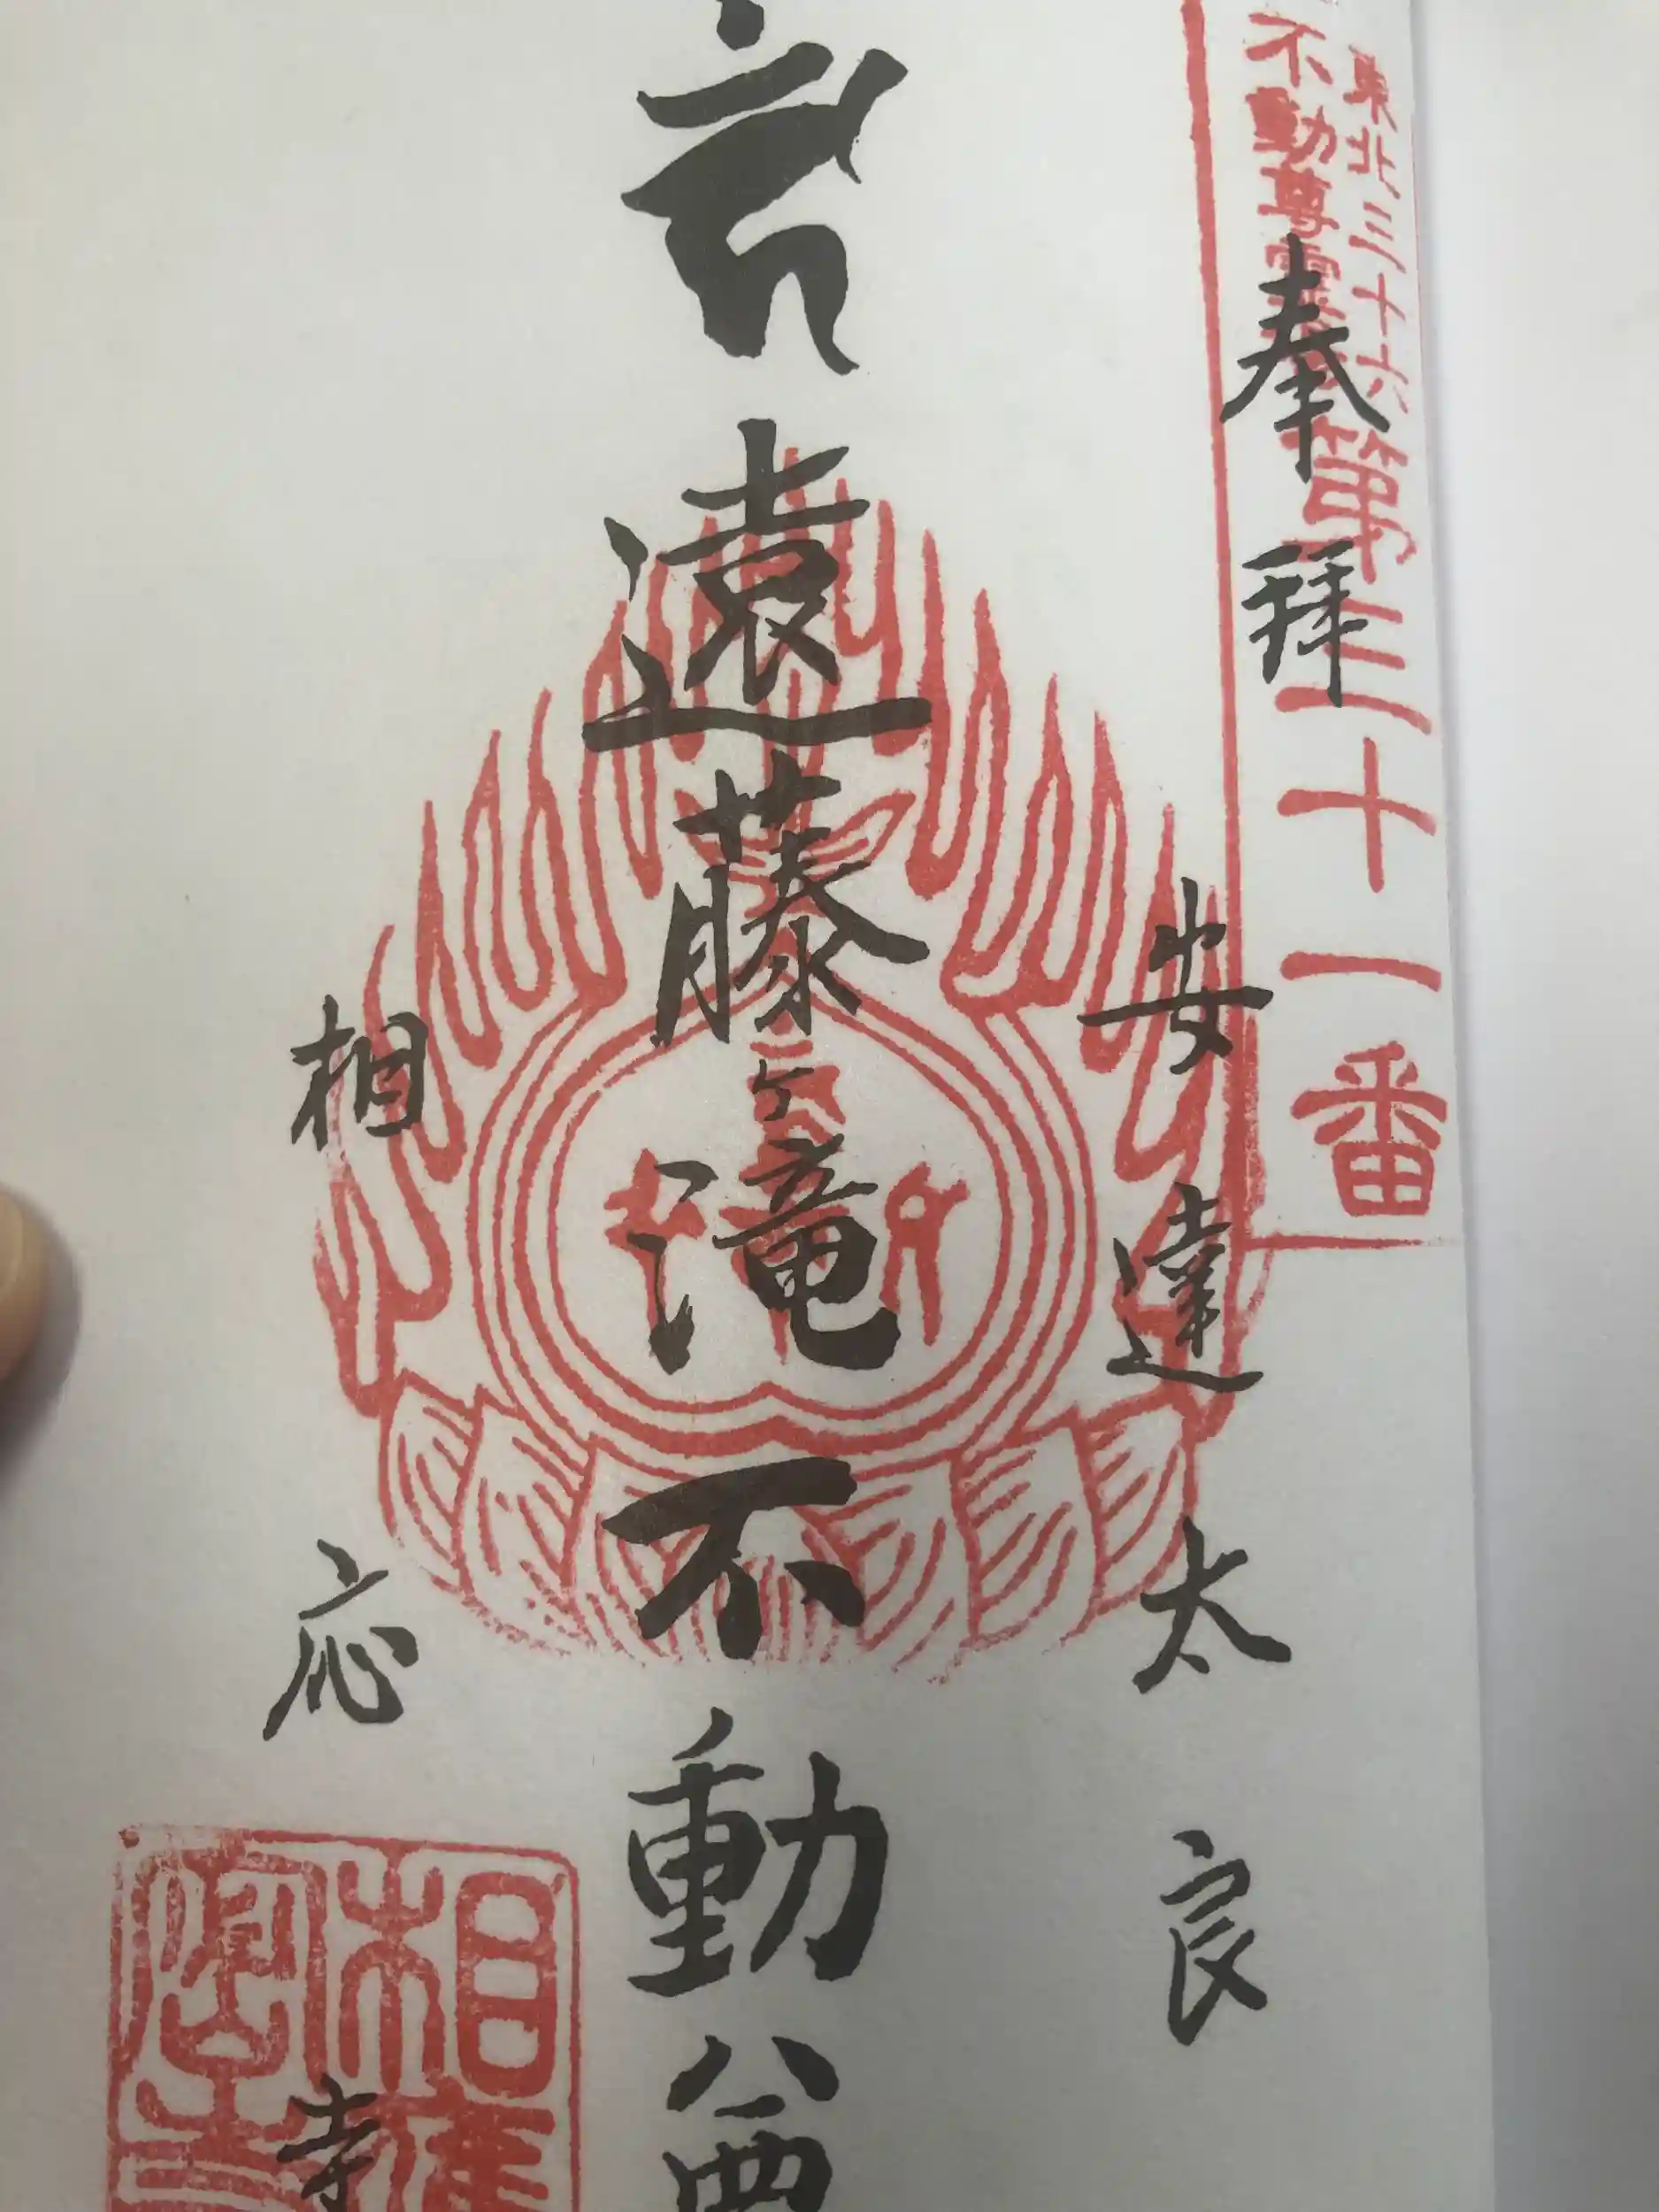 東北三十六
不動尊霊
第三十一番
奉拝
安達太良
遠藤ヶ滝不動
相応寺